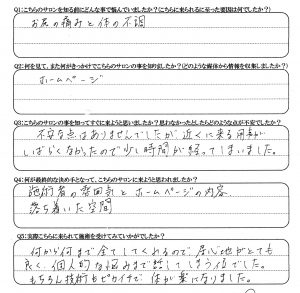 Q1:こちらのサロンを知る前にどんな事で悩んでいましたか？(こちらに来られるに至った要因は何でしたか？)
お尻の痛みと体の不調
Q2:何を見て、また何がきっかけでこちらのサロンの事を知りましたか？(どのような媒体から情報を収集しましたか？)
ホームページ
Q3:こちらのサロンの事を知ってすぐに来ようと思いましたか？思わなかったとしたらどのような点が不安でしたか？
不安な点はありませんでしたが、近くに来る用事が
しばらくなかったので少し時間が経ってしまいました。
Q4:何が最終的な決め手となって、こちらのサロンに来ようと思われましたか？
施術者の雰囲気とホームページの内容、
落ち着いた空間
Q5:実際こちらに来られて施術を受けてみていかがでしたか？
何から何まで全てしてくれるので、居心地がとても
良く、個人的な悩みまで話してしまう位でした。
もちろん技術もピカイチで体が楽になりました。